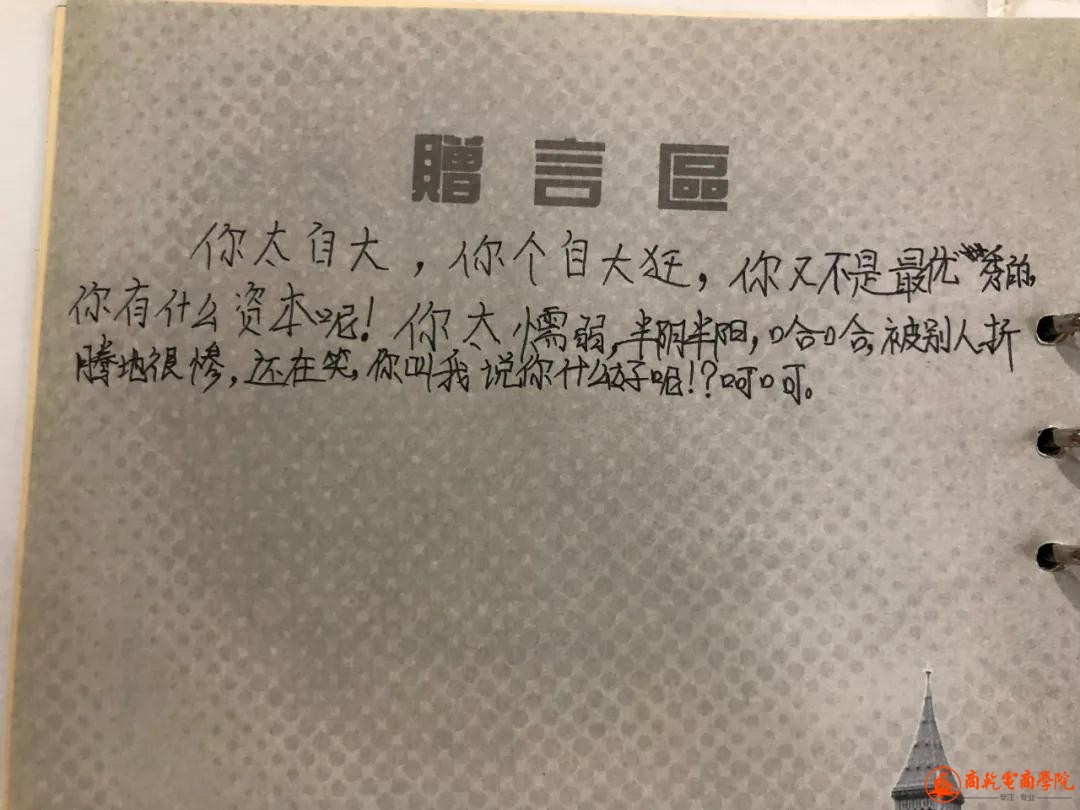 贈言區
你太自大，你个自大狂，你又不是最优秀的，
你有什么资本呢！你太懦弱，半阴半阳，哈哈，被别人折
腾地很惨，还在笑，你叫我说你什么好呢！？呵呵。
商乾電商學院
专注·专业